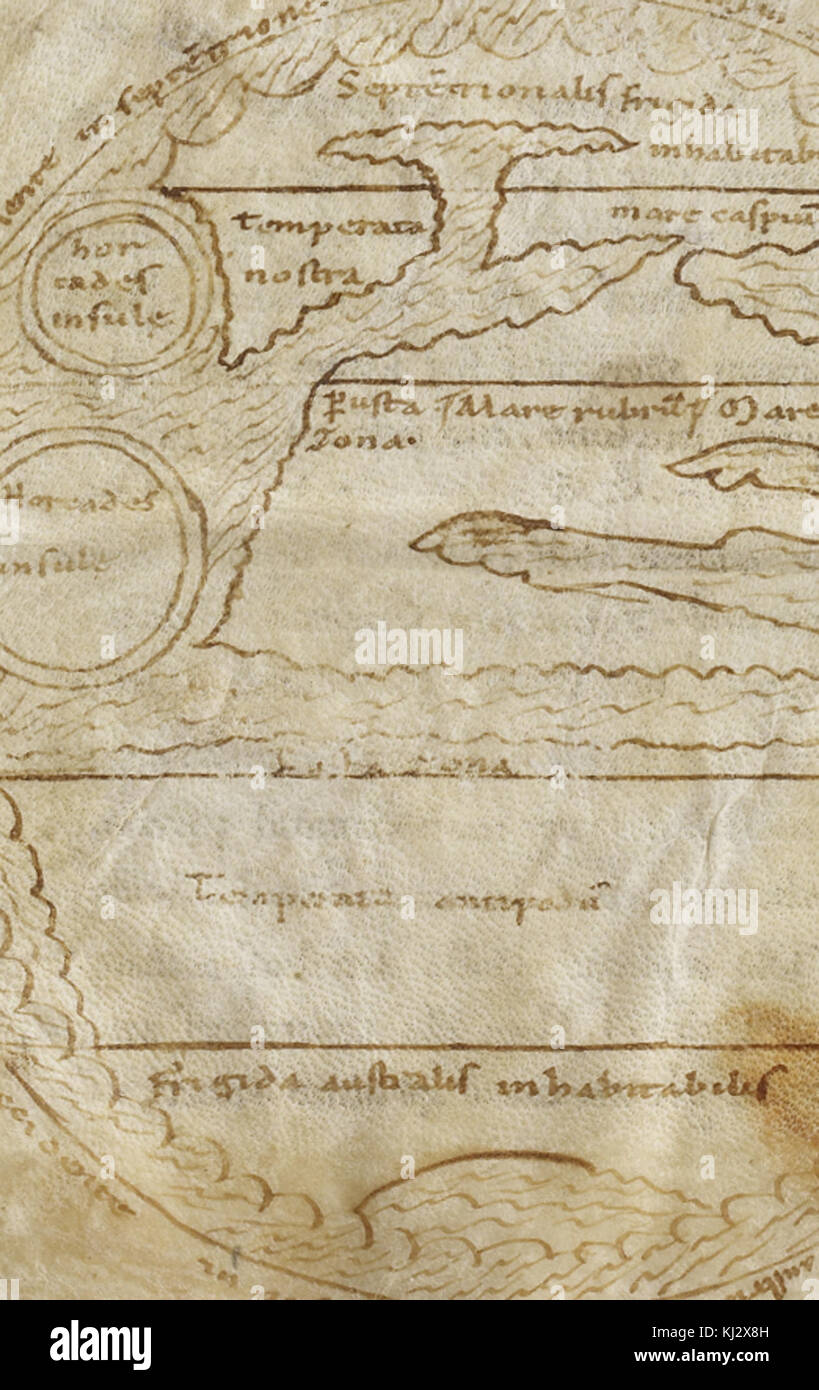 in septētrione.
Septētrionalis frigid.
inhabitab
temperata
nostra
mare caspiū
hor
cades
insule
Perusta Mare rubrū Mare
Zona.
Horcades
insule
Zona
Temperata antipodū
Frigida australis inhabitabilis
in
alamy
a
alamy stock photo
KJ2X8H
www.alamy.com